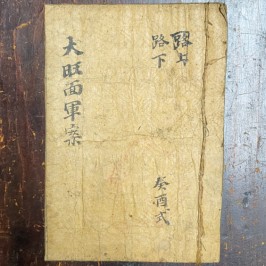 路上
路下
癸酉式
大旺面軍案